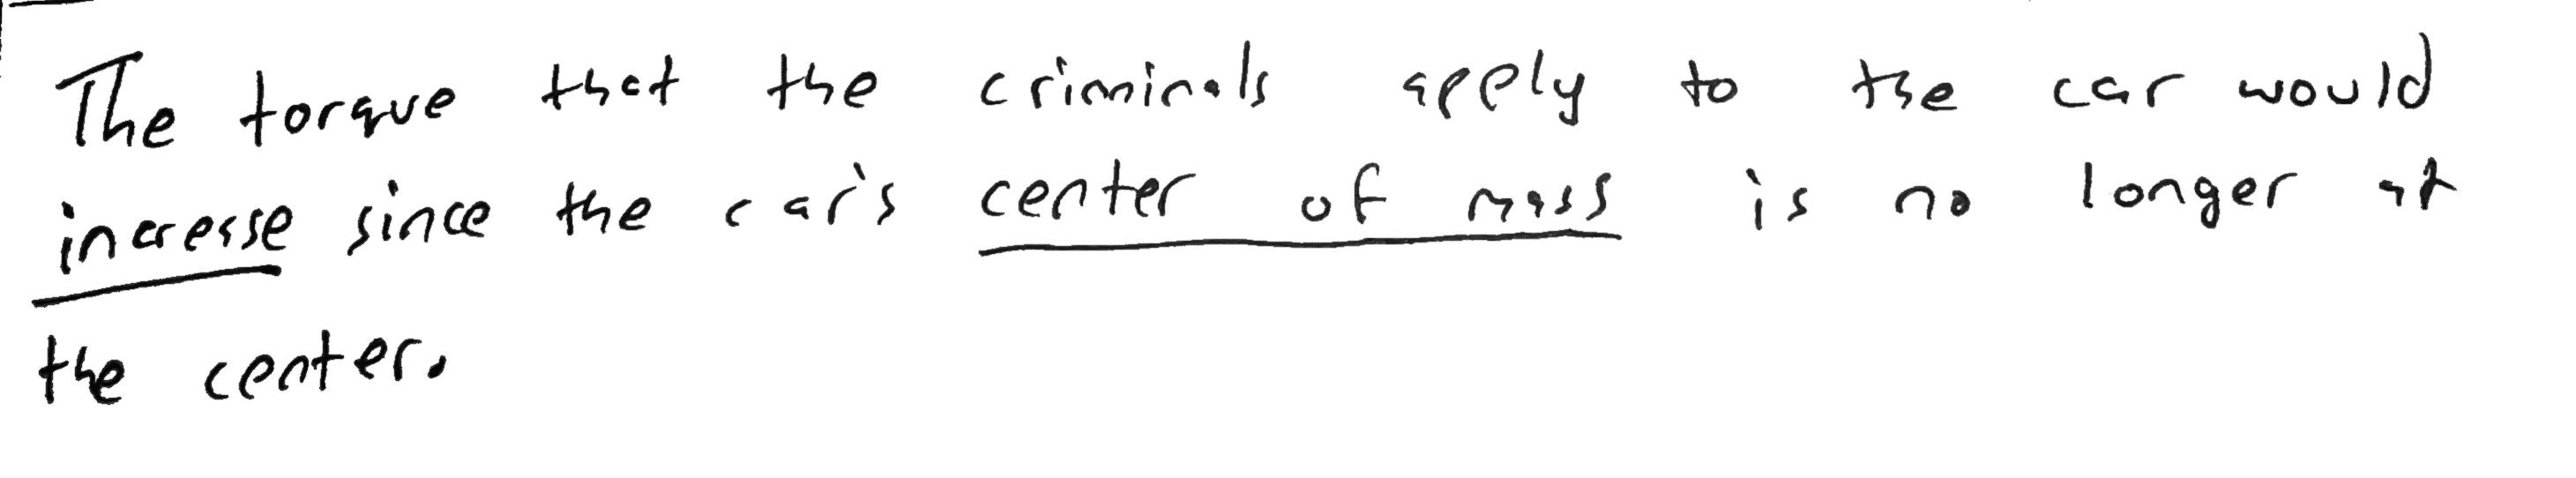 The torque that the criminals apply to the car would
increase since the car's center of mass is no longer at
the center.